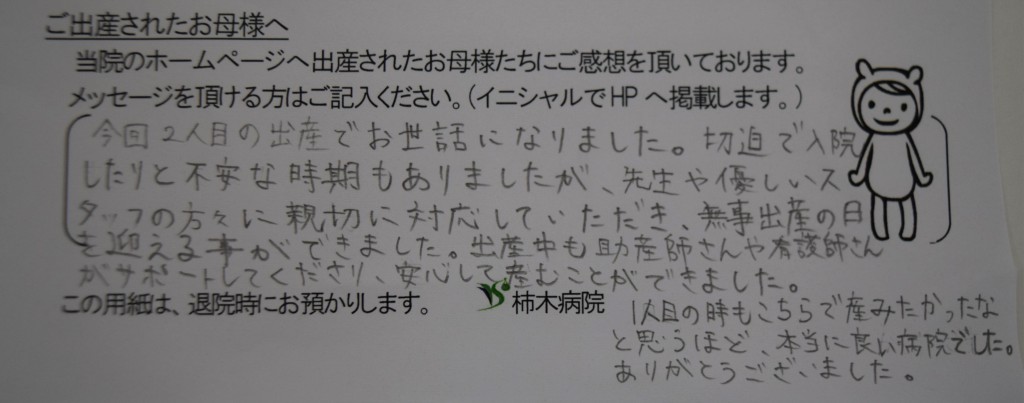 ご出産されたお母様へ
当院のホームページへ出産されたお母様たちにご感想を頂いております。
メッセージを頂ける方はご記入ください。(イニシャルでHPへ掲載します。)
今回2人目の出産でお世話になりました。切迫で入院
したりと不安な時期もありましたが、先生や優しいス
タッフの方々に親切に対応していただき、無事出産の日
を迎える事ができました。出産中も助産師さんや看護師さん
がサポートしてくださり、安心して産むことができました。
この用細は、退院時にお預かりします。
柿木病院
1人目の時もこちらで産みたかったな
と思うほど、本当に良い病院でした。
ありがとうございました。